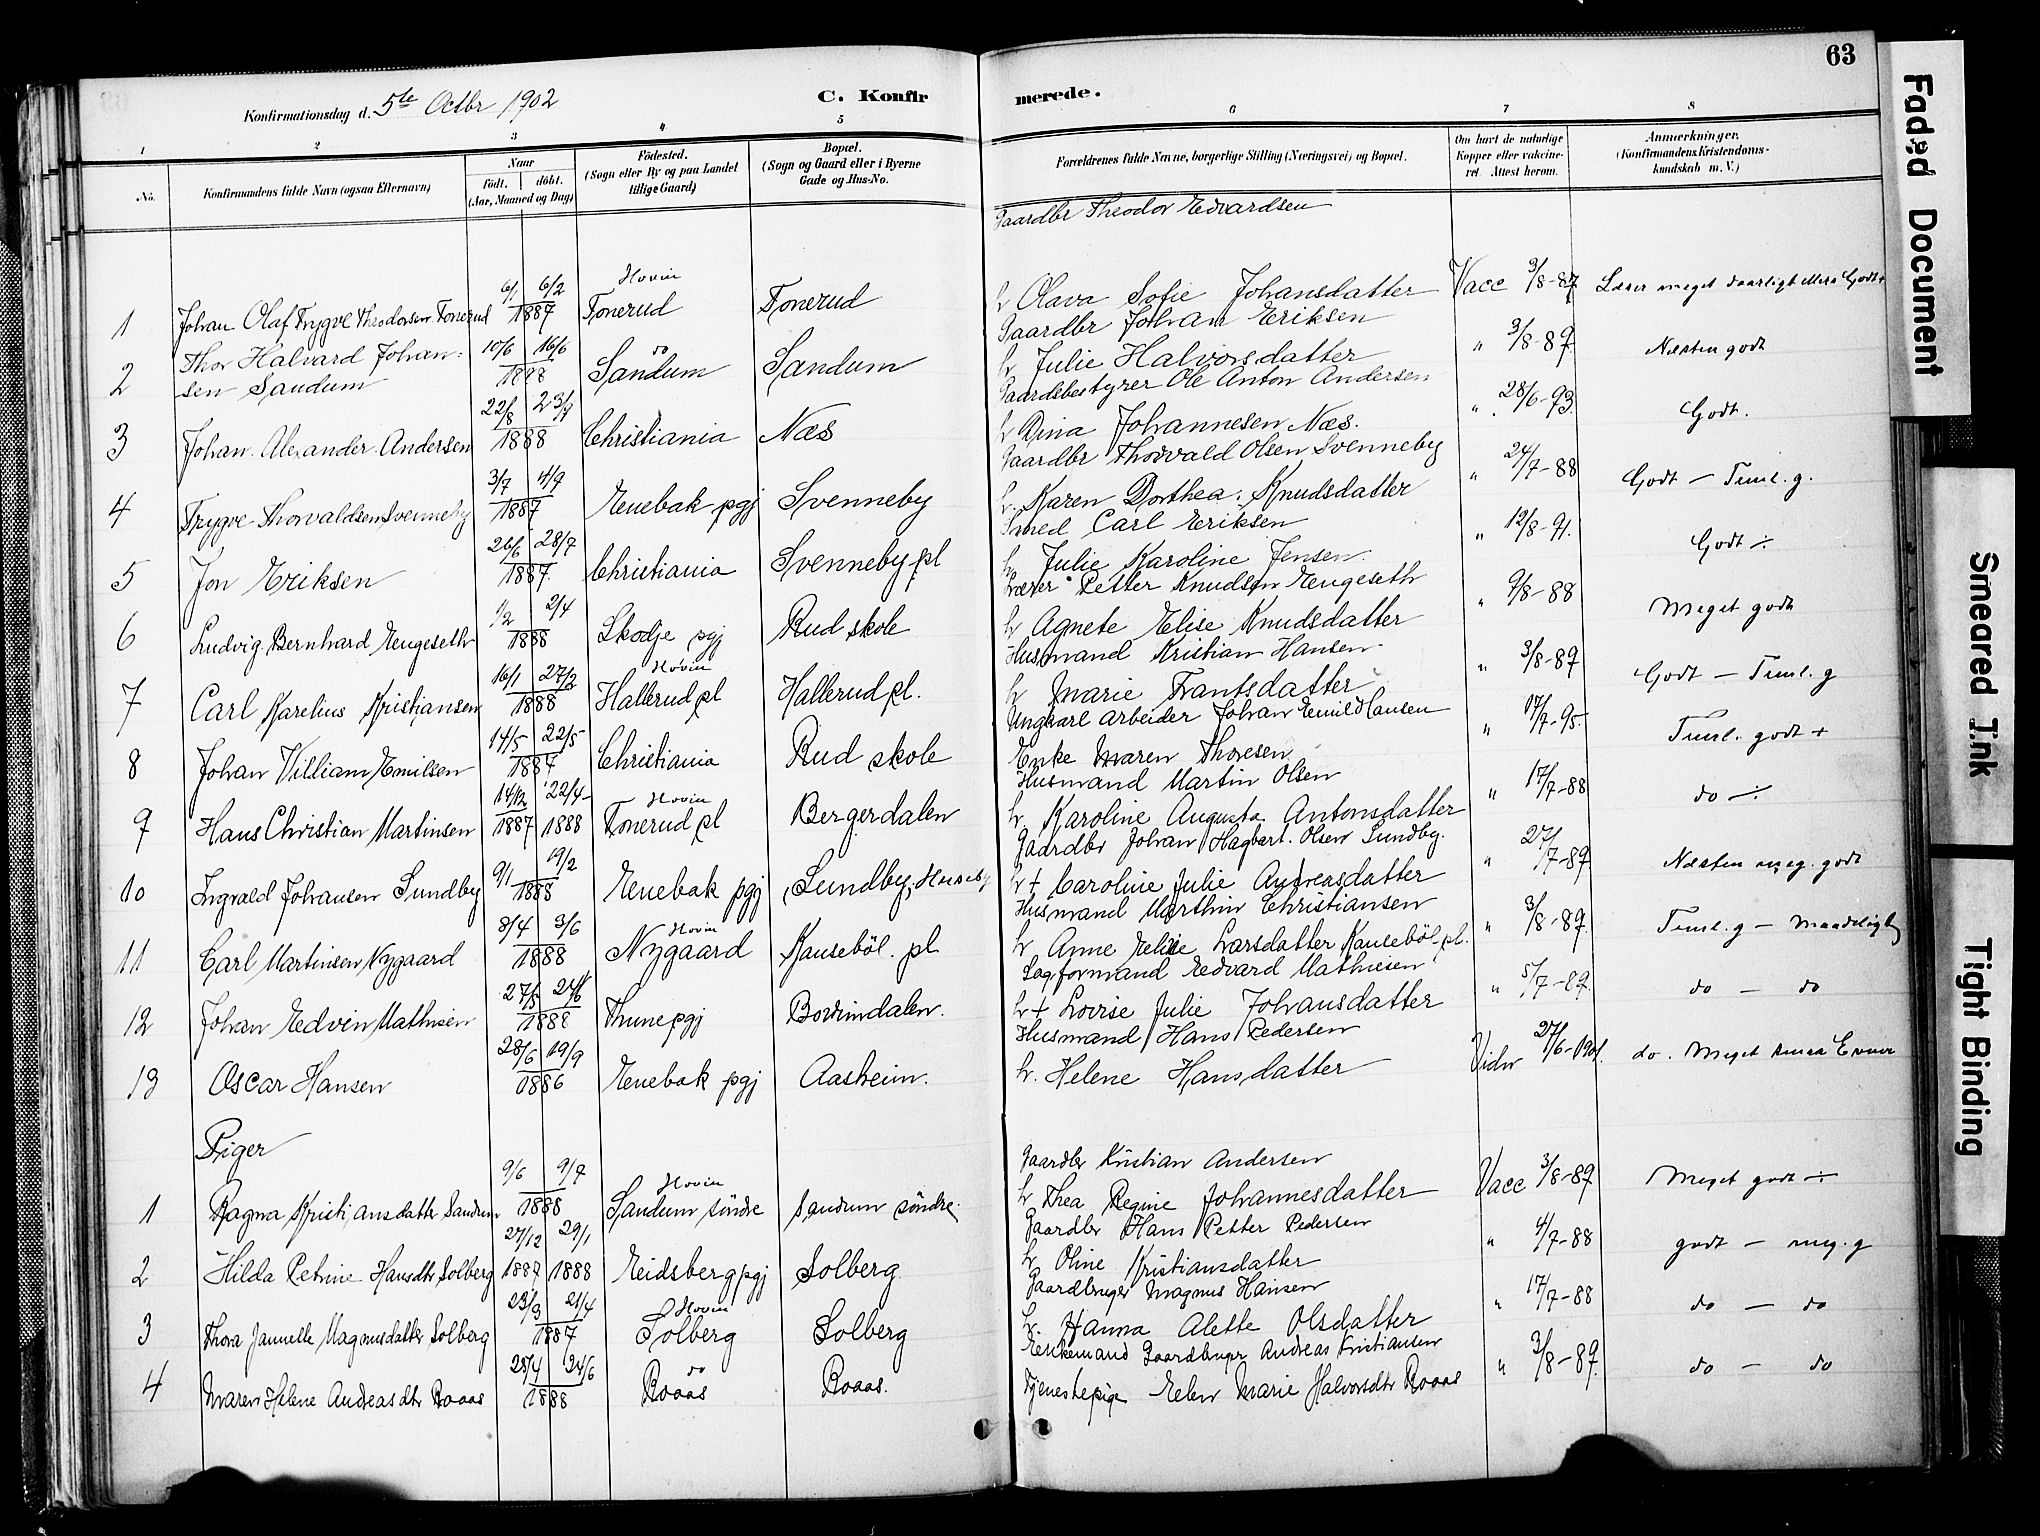 63
Konfirmationsdag d. 5te Octbr 1902
C. Konfir
merede.
1 2 3 4 5 6 7 8
No. Konfirmandens fulde Navn (ogsaa Efternavn)
Naar født. døbt. (Aar, Maaned og Dag)
Fødested. (Sogn eller By og paa Landet tillige Gaard)
Bopæl. (Sogn og Gaard eller i Byerne Gade og Hus-No.
Forældrenes fulde Navne, borgerlige Stilling (Næringsvei) og Bopæl.
Om havt de naturlige Kopper eller vakcineret. Attest herom.
Anmærkninger. (Konfirmandens Kristendomskundskab m. V.)
Gaardbr Theodor Edvardsen
1 Johan Olaf Trygve Theodorsen Tonerud 6/1 6/2 1887 Hovin Tonerud Tonerud h Olava Sofie Johansdatter Vacc 3/8-87 Læser meget daarligt ellers Godt+
Gaardbr Johan Eriksen
2 Thor Halvard Johansen Sandum 10/6 16/6 1888 do Sandum Sandum h Julie Halvorsdatter " 3/8-87. Næsten godt
Gaardsbestyrer Ole Anton Andersen
3 Johan Alexander Andersen 22/8 23/9 1888 Christiania Næs h Dina Johannesen Næs. " 28/6-93. Godt.
Gaardbr Thorvald Olsen Svenneby
4 Trygve Thorvaldsen Svenneby 3/7 4/9 1887 Enebak pgj Svenneby h. Karen Dorthea Knudsdatter " 24/7-88 Godt - Teml. g.
Smed Carl Eriksen
5 Jon Eriksen 26/6 28/7 1887. Christiania Svenneby pl h Julie Karoline Jensen " 12/8-91. Godt ÷
Lærer Petter Knudsen Engeseth
6 Ludvig Bernhard Engeseth 1/2 2/4 1888 Skodje pgj Rud skole h Agnete Elise Knudsdatter " 9/8-88 Meget godt
Husmand Kristian Hansen
7 Carl Karelius Kristiansen 16/1 27/2 1888 Hovin Hallerud pl Hallerud pl. h Marie Frantsdatter " 3/8-87 Godt - Teml. g
Ungkarl arbeider Johan Emil Hansen
8 Johan Villiam Emilsen 14/5 22/5 1887 Christiania Rud skole Enke Maren Thoresen " 17/7-95. Teml. godt +
Husmand Martin Olsen
9 Hans Christian Martinsen 14/12 1887 22/4 1888 Hovin Tonerud pl Bergerdalen h. Karoline Augusta Antonsdatter " 17/7-88 do ÷
Gaardbr Johan Hagbart. Olsen Sundby.
10 Ingvald Johansen Sundby 9/1 19/2 1888 Enebak pgj Sundby, h + Caroline Julie Andreasdatter " 27/7-87. Næsten meg. godt
Husmand Marthin Christiansen
11 Carl Martinsen Nygaard 8/4 3/6 1888 Hovin Nygaard Kausebøl. pl h Anne Elise Larsdatter Kausebøl pl. " 3/8-87. Teml. g - Maadeligt
Sagformand Edvard Mathiesen
12 Johan Edvin Mathisen 27/5 24/6 1888 Thune pgj h + Lovise Julie Johansdatter " 5/7-89. do - do
Husmand Hans Pedersen
13 Oscar Hansen 28/6 19/9 1886 Enebak pgj Aasheim. h. Helene Hansdatter Vidn 27/6-1901. do. Meget smaa Evner
Piger
Gaardbr Kristian Andersen
1 Ragna Kristiansdatter Sandum 9/6 9/7 1888 Hovin Sandum søndre Sandum søndre. h Thea Regine Johannesdatter Vacc 3/8-89 Meget godt ÷
Gaardbr Hans Petter Pedersen
2 Hilda Petrine Hansdtr Solberg 27/12 1887 29/1 1888 Eidsberg pgj Solberg h Oline Kristiansdatter " 4/7-88 godt - meg. g
Gaardbruger Magnus Hansen
3 Thora Jannette Magnusdatter Solberg 23/3 21/4 1887 Hovin Solberg Solberg h. Hanna Alette Olsdatter " 17/7-88 do - do
Enkemand Gaardbruger Andreas Kristiansen
4 Maren Helene Andreasdtr Roaas 25/4 24/6 1888 do Roaas Roaas. Tjenestepige Elen Marie Halvorsdtr Roaas " 3/8-89. do - do
Faded Document
Smeared Ink
Tight Binding